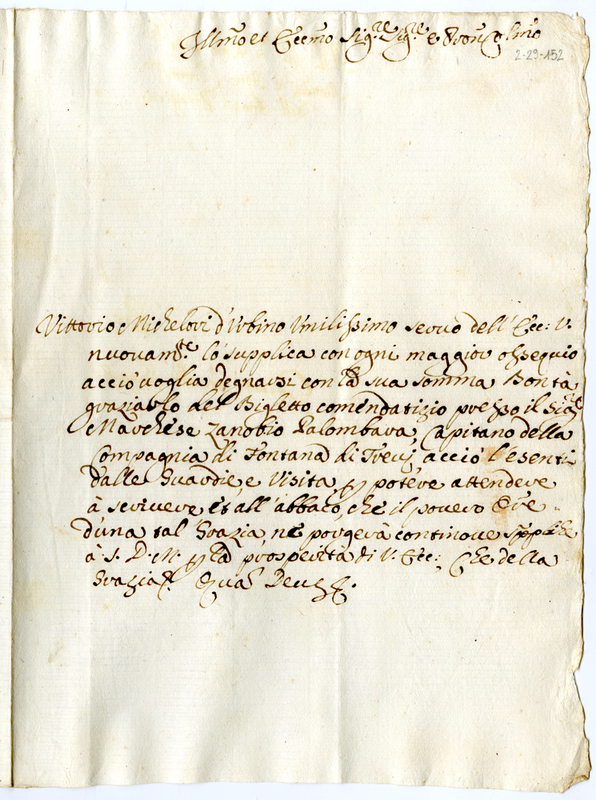 Illmo et Eccmo Sigre Sigre e Pron Colmo
2-29-152
Vittorio Michelori d'Urbino Umilissimo servo dell'Ecc: V.
nuovamte lo supplica con ogni maggior ossequio
acciò voglia degnarsi con la sua somma Bontà
graziarlo del Biglietto comendatizio presso il Sigre
Marchese Zanobio Palombara, Capitano della
Compagnia di Fontana di Trevi, acciò l'esenti
dalle Guardie, e Visita p potere attendere
à scrivere et all'abbaco, che il povero Ore
d'una tal Grazia, ne porgerà continoue
à S. D. M. p la prosperità di V. Ecc:, Che della
Grazia &. Quam Deus &.